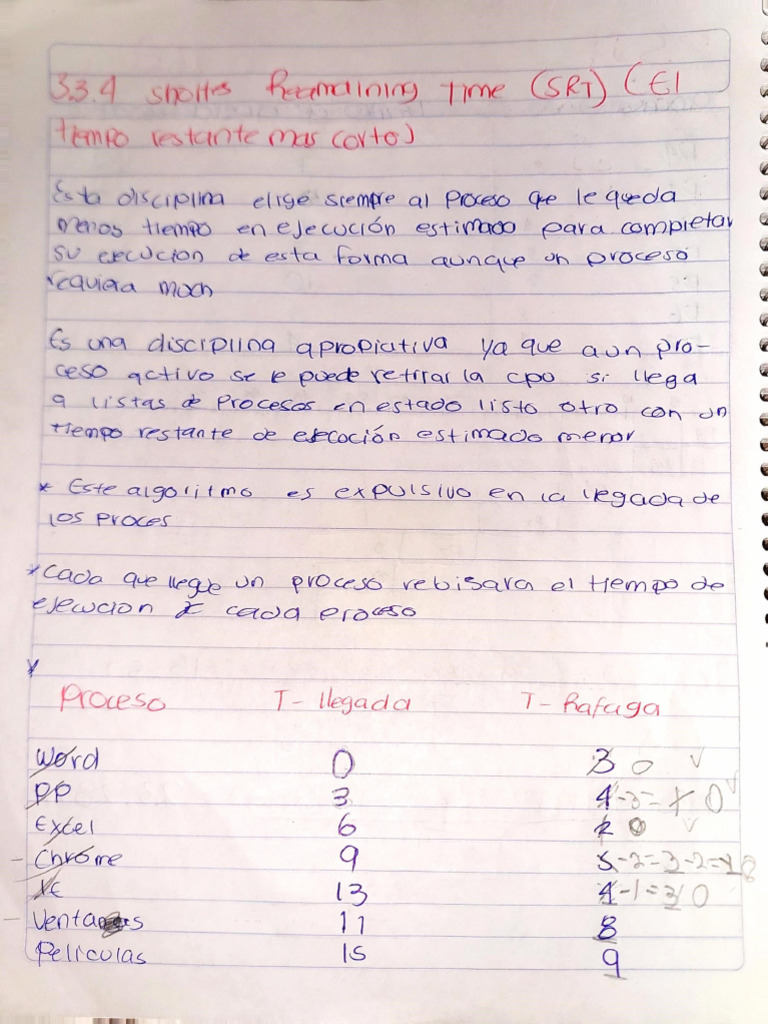 3.3.4 shortes Reamaining Time (SRT) (El
tiempo restante mas corto)
Esta disciplina elige siempre al proceso que le queda
menos tiempo en ejecución estimado para completar
su ejecucion de esta forma aunque un proceso
requiera much
Es una disciplina apropiativa ya que aun pro-
ceso activo se le puede retirar la cpu si llega
a listas de procesos en estado listo otro con un
tiempo restante de ejecución estimado menor
* Este algoritmo es expulsivo en la llegada de
los proces
* Cada que llegue un proceso rebisara el tiempo de
ejecucion de cada proceso
*
Proceso T- llegada T- Rafaga
Word 0 3 0 ✓
PP 3 4-3=1 0 ✓
Excel 6 0 ✓
Chrome 9 5-2=3-2=1
13 4-1=3 0
Ventas 11 8
Peliculas 15 9